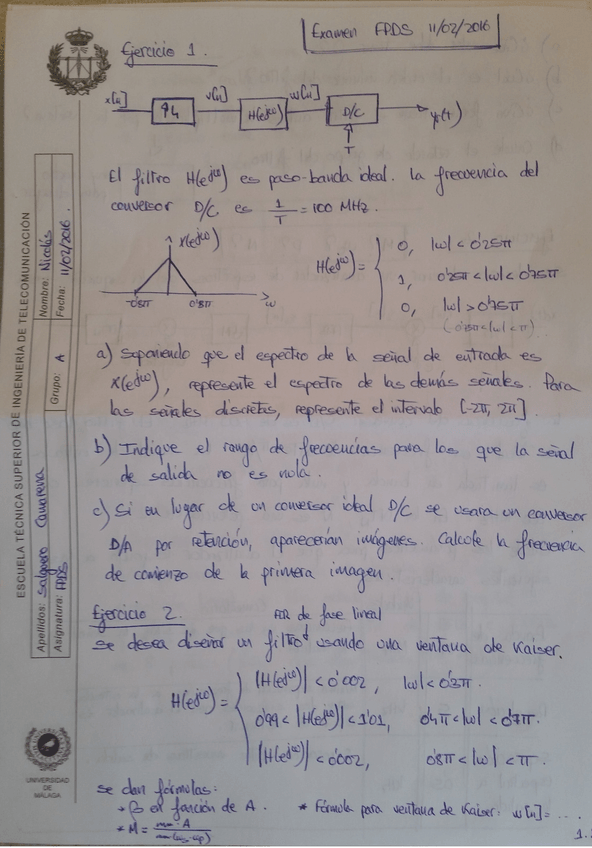 Examen FPDS 11/02/2016
Ejercicio 1.
x[n] ↑4 v[n] H(e^jω) w[n] D/C y(t)
T
El filtro H(e^jω) es paso-banda ideal. La frecuencia del
conversor D/C es 1/T = 100 MHz.
X(e^jω)
-0'8π 0'8π ω
H(e^jω) =
0, |ω| < 0'25π
1, 0'25π < |ω| < 0'75π
0, |ω| > 0'75π
a) Suponiendo que el espectro de la señal de entrada es
X(e^jω), represente el espectro de las demás señales. Para
las señales discretas, represente el intervalo [-2π, 2π].
b) Indique el rango de frecuencias para los que la señal
de salida no es nula.
c) Si en lugar de un conversor ideal D/C se usara un conversor
D/A por retención, aparecerían imágenes. Calcule la frecuencia
de comienzo de la primera imagen.
Ejercicio 2.
FIR de fase lineal
Se desea diseñar un filtro usando una ventana de Kaiser.
H(e^jω) =
|H(e^jω)| < 0'002, |ω| < 0'3π.
0'99 < |H(e^jω)| < 1'01, 0'4π < |ω| < 0'7π.
|H(e^jω)| < 0'002, 0'8π < |ω| < π.
Se dan fórmulas:
* β en función de A. * Fórmula para ventana de Kaiser: w[n] = ...
* M =
1.
ESCUELA TÉCNICA SUPERIOR DE INGENIERÍA DE TELECOMUNICACIÓN
Apellidos: Salguero Camarena Nombre: Nicolás
Asignatura: FPDS Grupo: A Fecha: 11/02/2016
UNIVERSIDAD
DE MÁLAGA